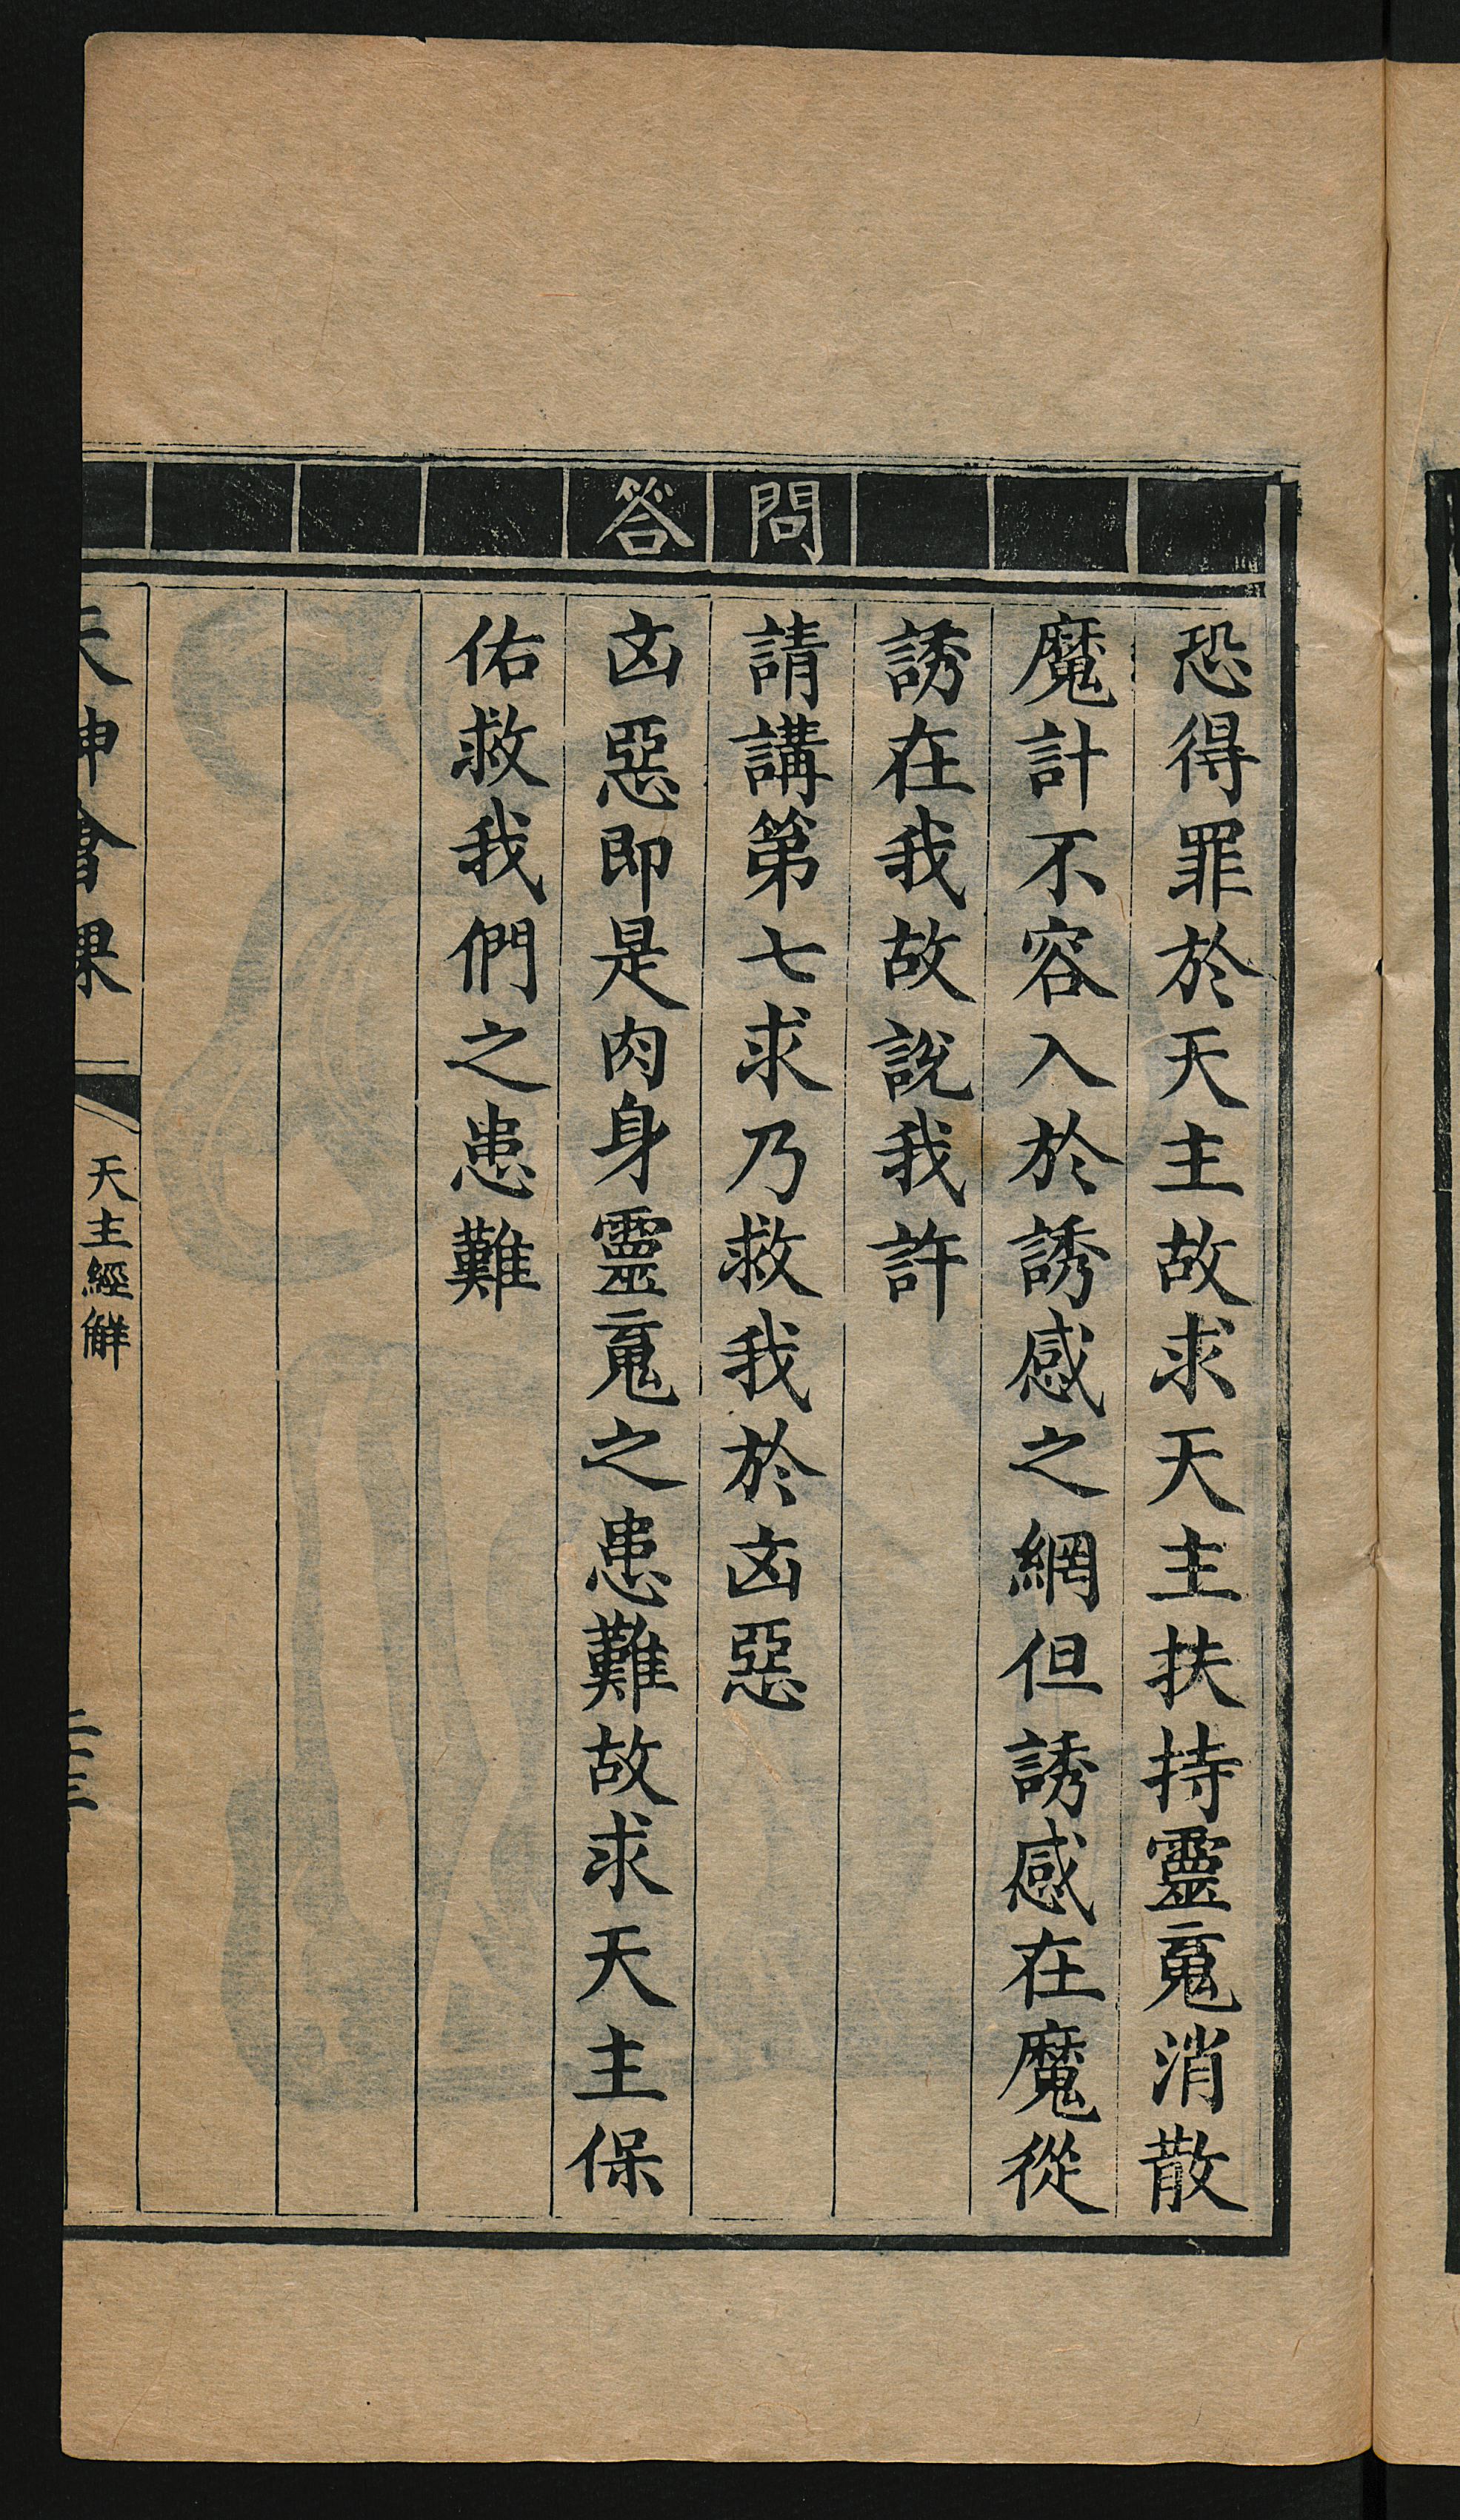 恐得罪於天主故求天主扶持靈䰟消散
魔計不容入於誘感之網但誘感在魔從
誘在我故說我許
問
請講第七求乃救我於凶惡
答
凶惡即是肉身靈䰟之患難故求天主保
佑救我們之患難
天神會課
天主經解
二十三